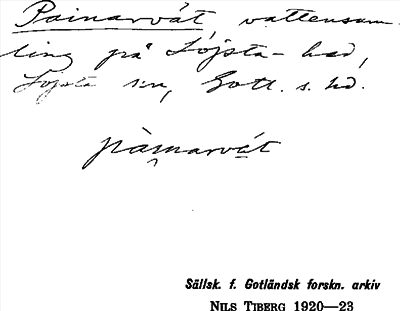 Painarvät vattensam-
ling på Lojsta-hed,
Lojsta sn, Gotl. s. hd.
pàinarvát
Sällsk. f. Gotländsk forskn. arkiv
NILS TIBERG 1920—23